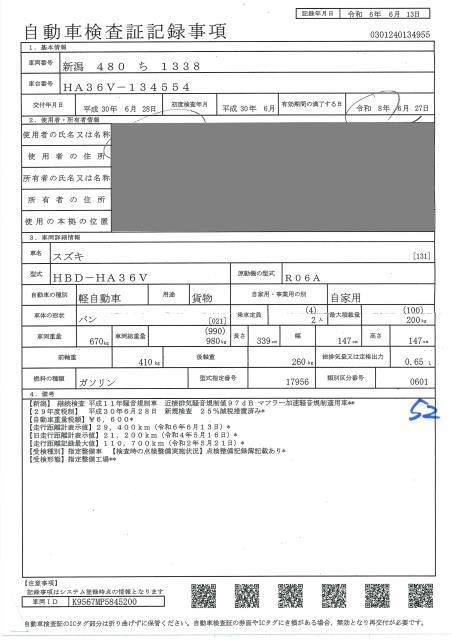 記録年月日 令和 6年 6月 13日
自動車検査証記録事項
0301240134955
1. 基本情報
車両番号 新潟 480 ち 1338
車台番号 HA36V-134554
交付年月日 平成 30年 6月 28日 初度検査年月 平成 30年 6月 有効期間の満了する日 令和 8年 6月 27日
2. 使用者・所有者情報
使用者の氏名又は名称
使用者の住所
所有者の氏名又は名称
所有者の住所
使用の本拠の位置
3. 車両詳細情報
車名 スズキ [131]
型式 HBD-HA36V 原動機の型式 R06A
自動車の種別 軽自動車 用途 貨物 自家用・事業用の別 自家用
車体の形状 バン [021] 乗車定員 (4) 2人 最大積載量 (100) 200kg
車両重量 670kg 車両総重量 (990) 980kg 長さ 339cm 幅 147cm 高さ 147cm
前軸重 410kg 後軸重 260kg 総排気量又は定格出力 0.65 L
燃料の種類 ガソリン 型式指定番号 17956 類別区分番号 0601
4. 備考
【新潟】 継続検査 平成11年騒音規制車 近接排気騒音規制値97dB マフラー加速騒音規制適用車**
【29年度税制】 平成30年6月28日 新規検査 25%減税措置済み*
【自動車重量税額】 ¥6,600*
【走行距離計表示値】 29,400km (令和6年6月13日)*
【旧走行距離計表示値】 21,200km (令和4年5月16日)*
【走行距離記録最大値】 110,700km (令和2年5月21日)*
【受検種別】 指定整備車 【検査時の点検整備実施状況】 点検整備記録簿記載あり*
【受検形態】 指定整備工場**
52
【注意事項】
記録事項はシステム登録時点の情報となります
車両ID K9567MP5845200
自動車検査証のICタグ部分は折り曲げずに保管ください。自動車検査証の券面やICタグにき損がある場合、無効となり再交付が必要です。